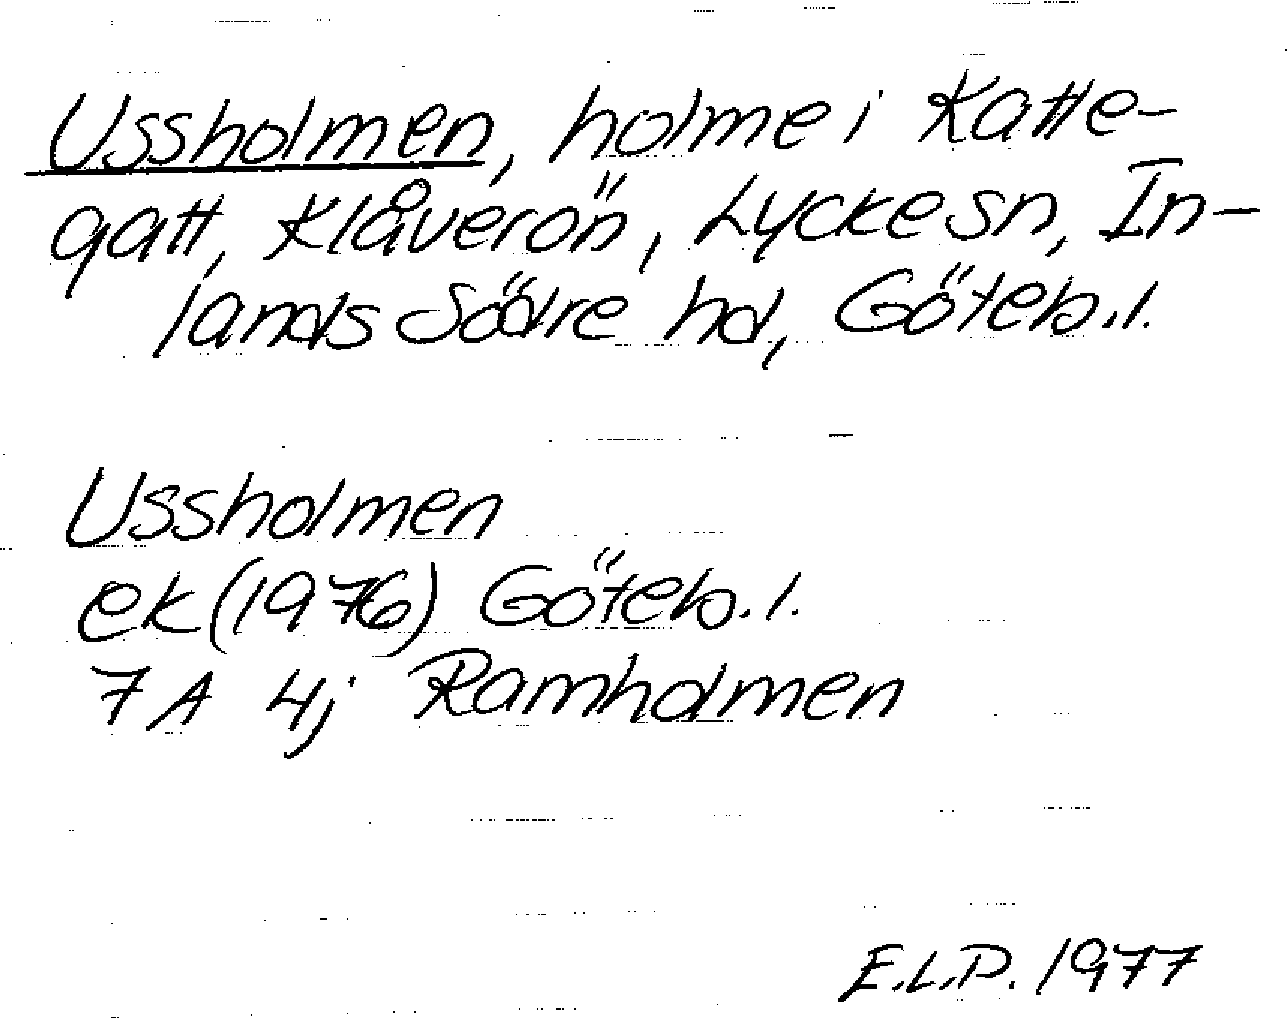 Ussholmen, holme i Katte-
gatt, Klåverön, Lycke sn, In-
lands Södre hd, Göteb.l.
Ussholmen
ek(1976) Göteb.l.
7A 4j Ramholmen
E.L.P. 1977